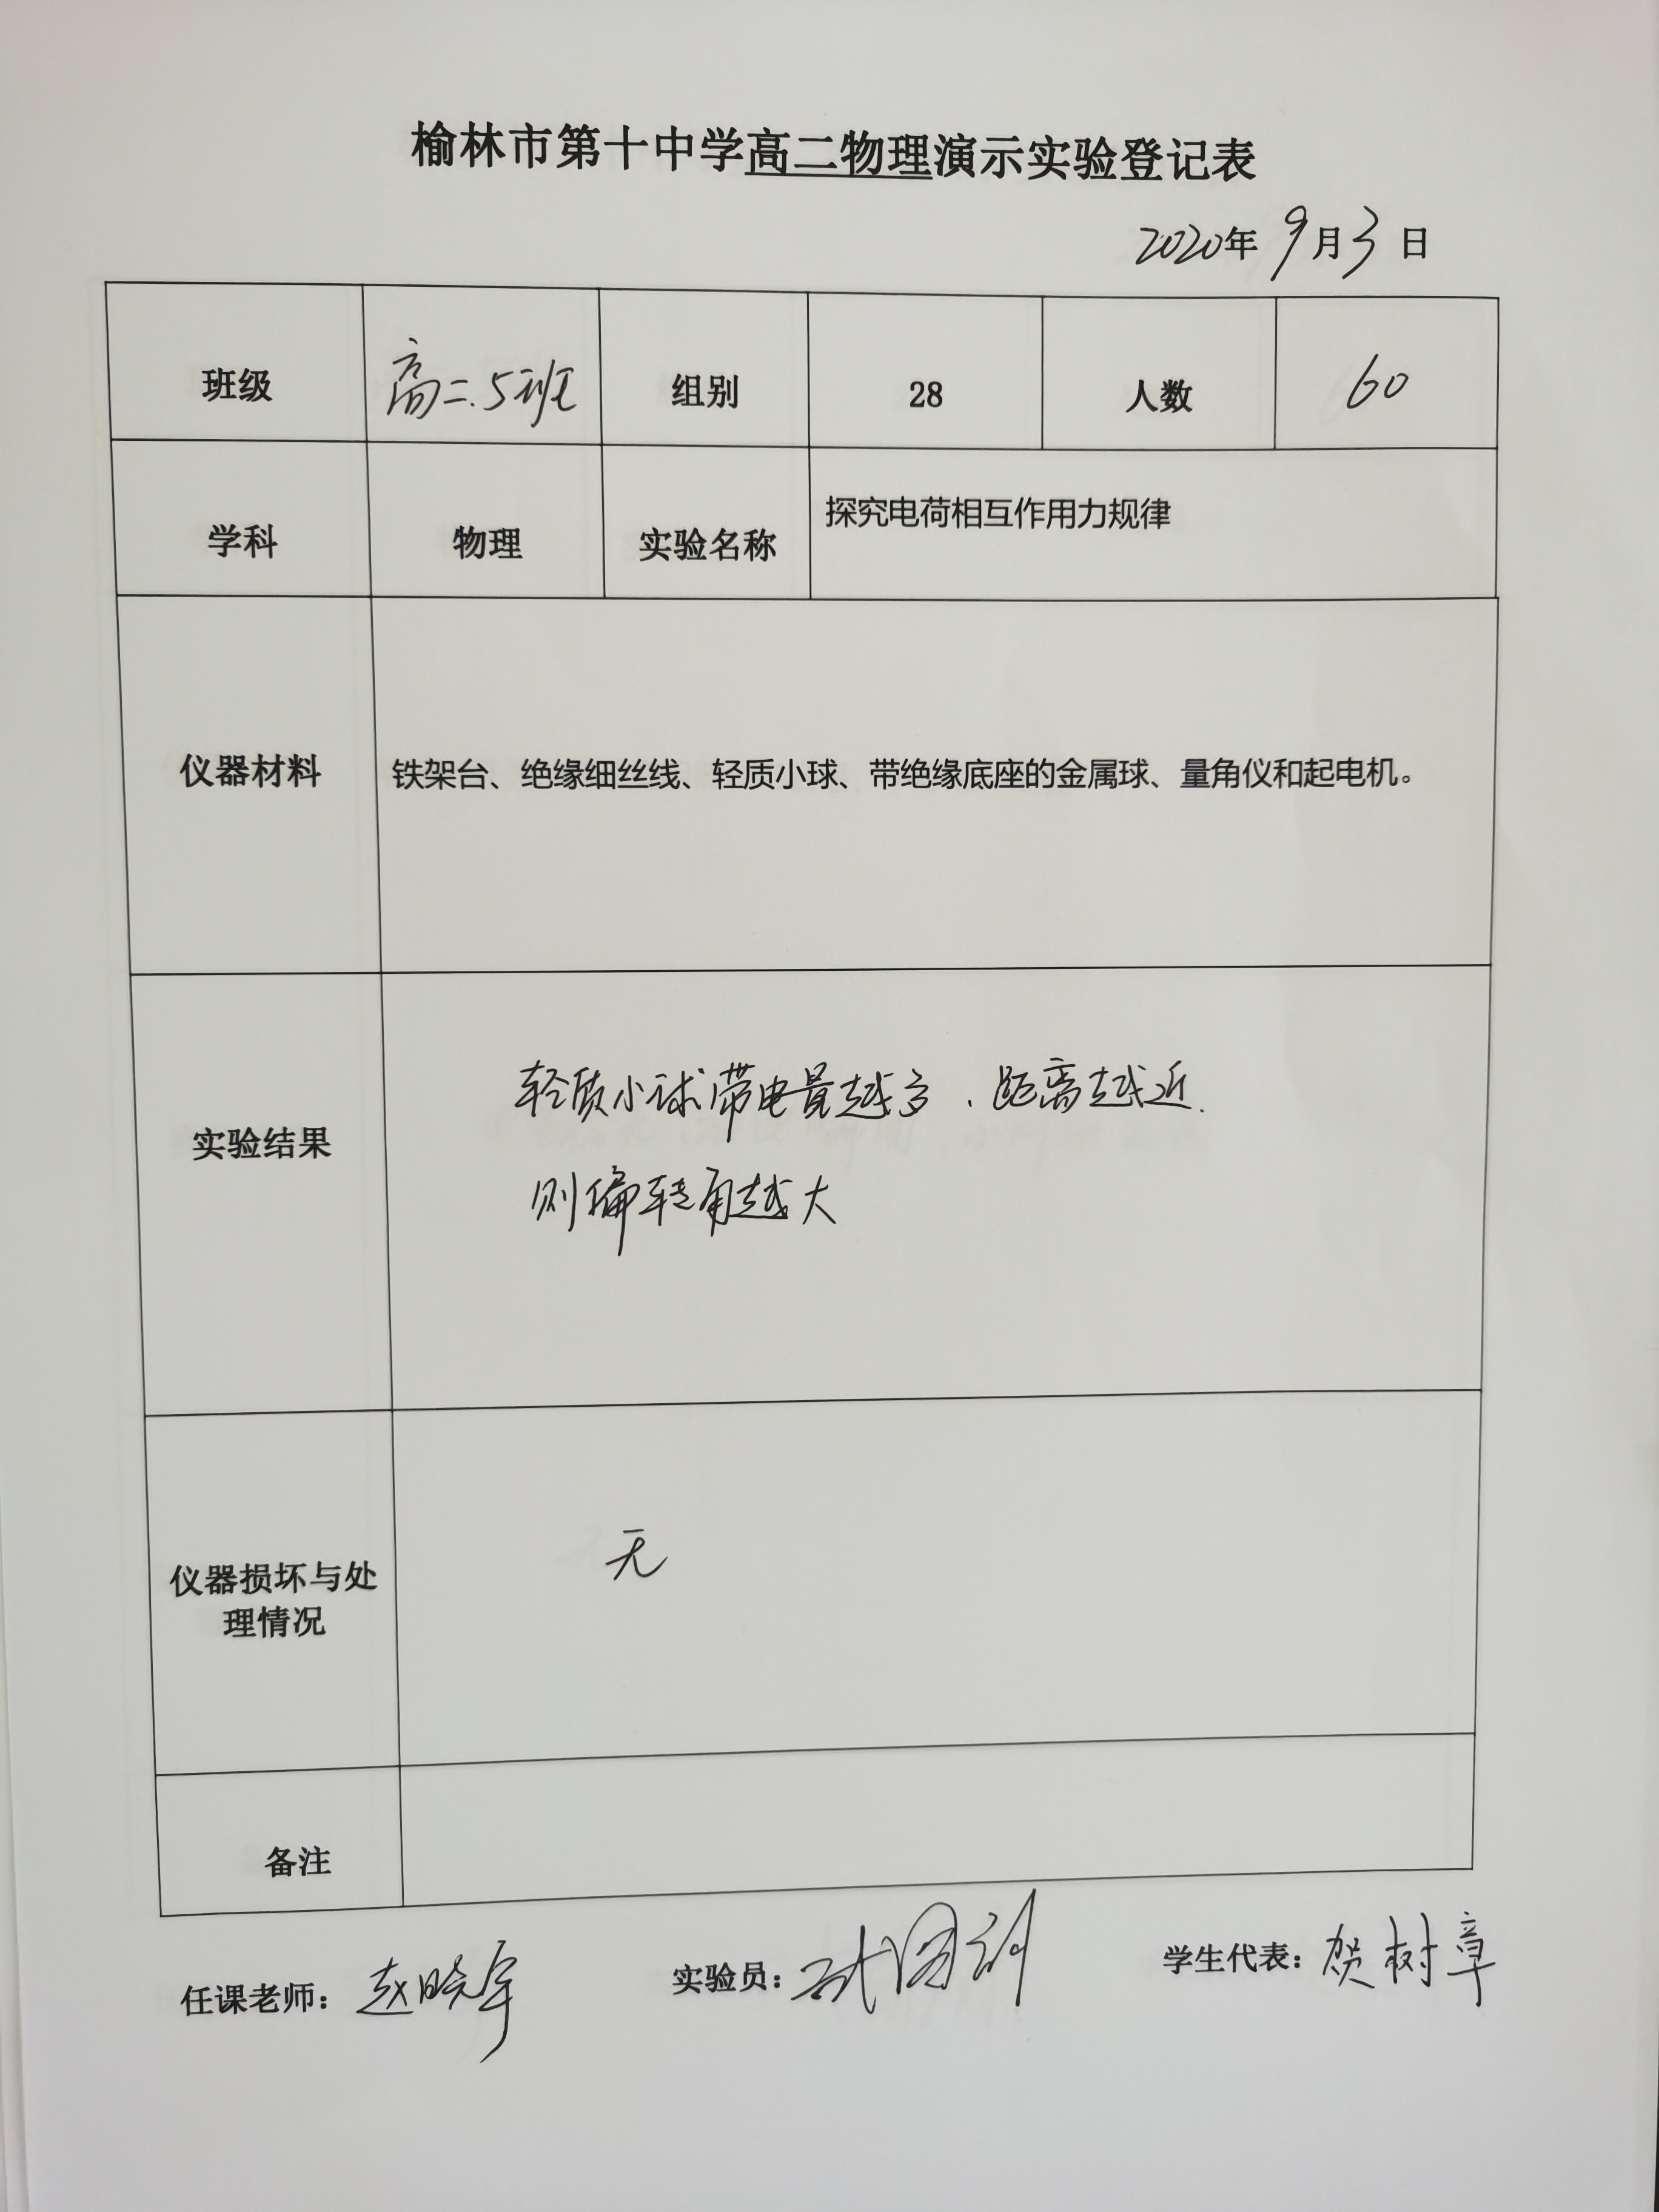 榆林市第十中学高二物理演示实验登记表
2020年 9月3日
班级 高二.5班 组别 28 人数 60
学科 物理 实验名称 探究电荷相互作用力规律
仪器材料 铁架台、绝缘细丝线、轻质小球、带绝缘底座的金属球、量角仪和起电机。
实验结果 轻质小球带电量越多、距离越近.
则偏转角越大
仪器损坏与处
理情况 无
备注
任课老师：赵晓宇 实验员： 学生代表：贺树章